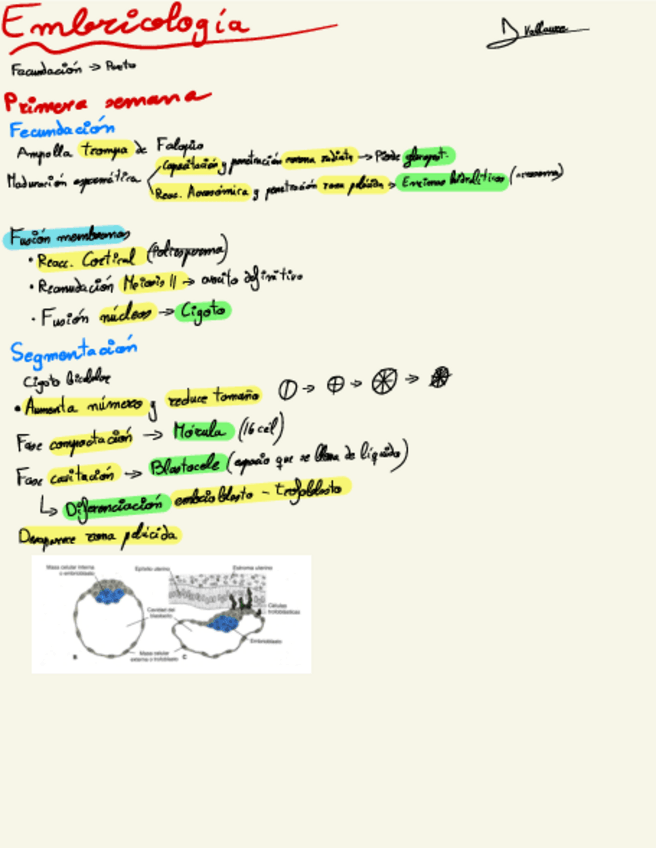 Embriología
D Vallaure
Fecundación → Parto
Primera semana
Fecundación
Ampolla trompa de Falopio
Maduración espermática
Capacitación y penetración corona radiata → Pierde glucoprot.
Reac. Acrosómica y penetración zona pelúcida → Enzimas hidrolíticos (acrosoma)
Fusión membranas
• Reacc. Cortical (Poliespermia)
• Reanudación Meiosis II → ovocito definitivo
• Fusión núcleos → Cigoto
Segmentación
Cigoto bicelular
• Aumenta número y reduce tamaño
Fase compactación → Mórula (16 cél)
Fase cavitación → Blastocele (espacio que se llena de líquido)
↳ Diferenciación embrioblasto - trofoblasto
Desaparece zona pelúcida
Masa celular interna o embrioblasto
Epitelio uterino
Estroma uterino
Cavidad del blastocito
Células trofoblásticas
Embrioblasto
Masa celular externa o trofoblasto
B
C